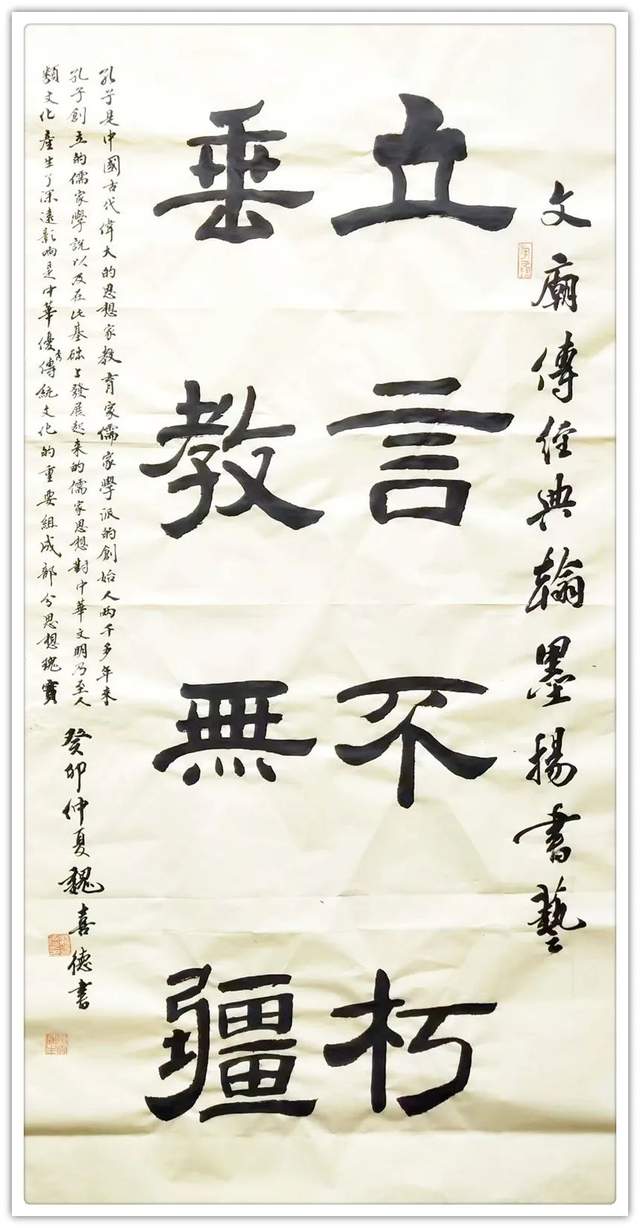 文廟傳經典翰墨揚書藝
立言不朽
垂教無疆
孔子是中國古代偉大的思想家教育家儒家學派的創始人两千多年来
孔子創立的儒家學説以及在此基础上發展起来的儒家思想對中華文明乃至人
類文化產生了深遠影响是中華優秀傳統文化的重要組成部分思想瑰寶
癸卯仲夏魏喜德書